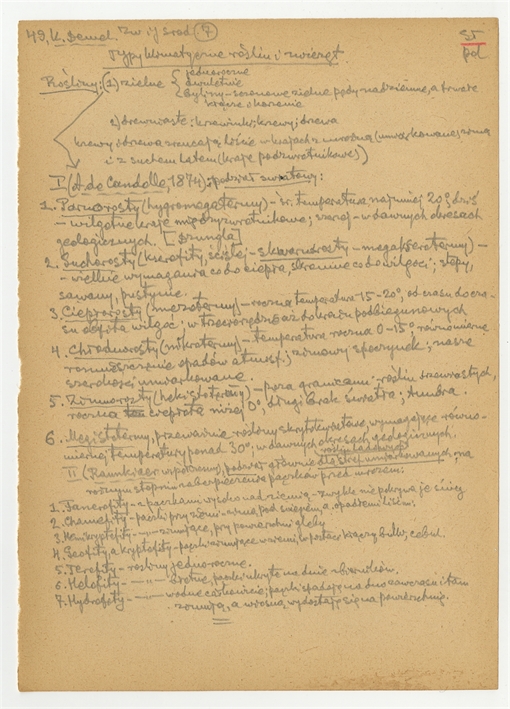 49, K. Demel. Zw. i j. srod. (7)
Typy klimatyczne roślin i zwierząt.
Rośliny: (1) zielne { jednoroczne
dwuletnie
byliny - sezonowe zielne pędy nadziemne, a trwałe
kłącze i korzenie
2) drzewiaste: krzewinki; krzewy; drzewa
krzewy i drzewa zrzucają liście w krajach z mroźną (umiarkowane) zimą
i z suchem latem (kraje podzwrotnikowe)
I (A. de Candolle, 1874); podział światowy:
1. Parnorosty (hygromegatermy) - śr. temperatura najmniej 20°; dziś
- wilgotne kraje międzyzwrotnikowe; szerzej - w dawnych okresach
geologicznych. [Dżungla]
2. Sucharosty (kserofity, ściślej - skwarorosty - megakseratermy) -
- wielkie wymagania co do ciepła, skromne co do wilgoci; stepy,
sawany, pustynie.
3. Cieplorosty (mezotermy) - roczna temperatura 15-20°, od czasu do cza-
su obfita wilgoć; w trzeciorzędzie aż do krajów podbiegunowych
4. Chłodnorosty (mikrotermy) - temperatura roczna 0-15°, równomierne
rozmieszczenie opadów atmosf.; zimowy spoczynek; nasze
szerokości umiarkowane.
5. Zimnorosty (hekistotermy) - poza granicami roślin drzewiastych,
roczna ciepłota niżej 0°, długi brak światła; tundra.
6. Megistotermy, przeważnie rośliny skrytokwiatowe, wymagające równo-
miernej temperatury ponad 30°; w dawnych okresach geologicznych.
II (Raunkiaer współczesny), podział głównie dla stref umiarkowanych, na
różnym stopniu zabezpieczenia pączków przed mrozem:
1. Fanerofity - z pączkami wysoko nad ziemią - zwykle nie pokrywa je śnieg
2. Chamefity - pączki przy ziemi - zimą pod śniegiem, a. opadłemi liśćm.
3. Hemikryptofity - " - zimujące, przy powierzchni gleby
4. Geofity, a. kryptofity - pączki zimujące w ziemi, w postaci kłączy, bulw, cebul.
5. Terofity - rośliny jednoroczne.
6. Helofity - " - błotne, pączki ukryte na dnie zbiorników.
7. Hydrofity - " - wodne całkowicie; pączki spadają na dno zawczasu i tam
zimują, a wiosną wydostają się na powierzchnię.